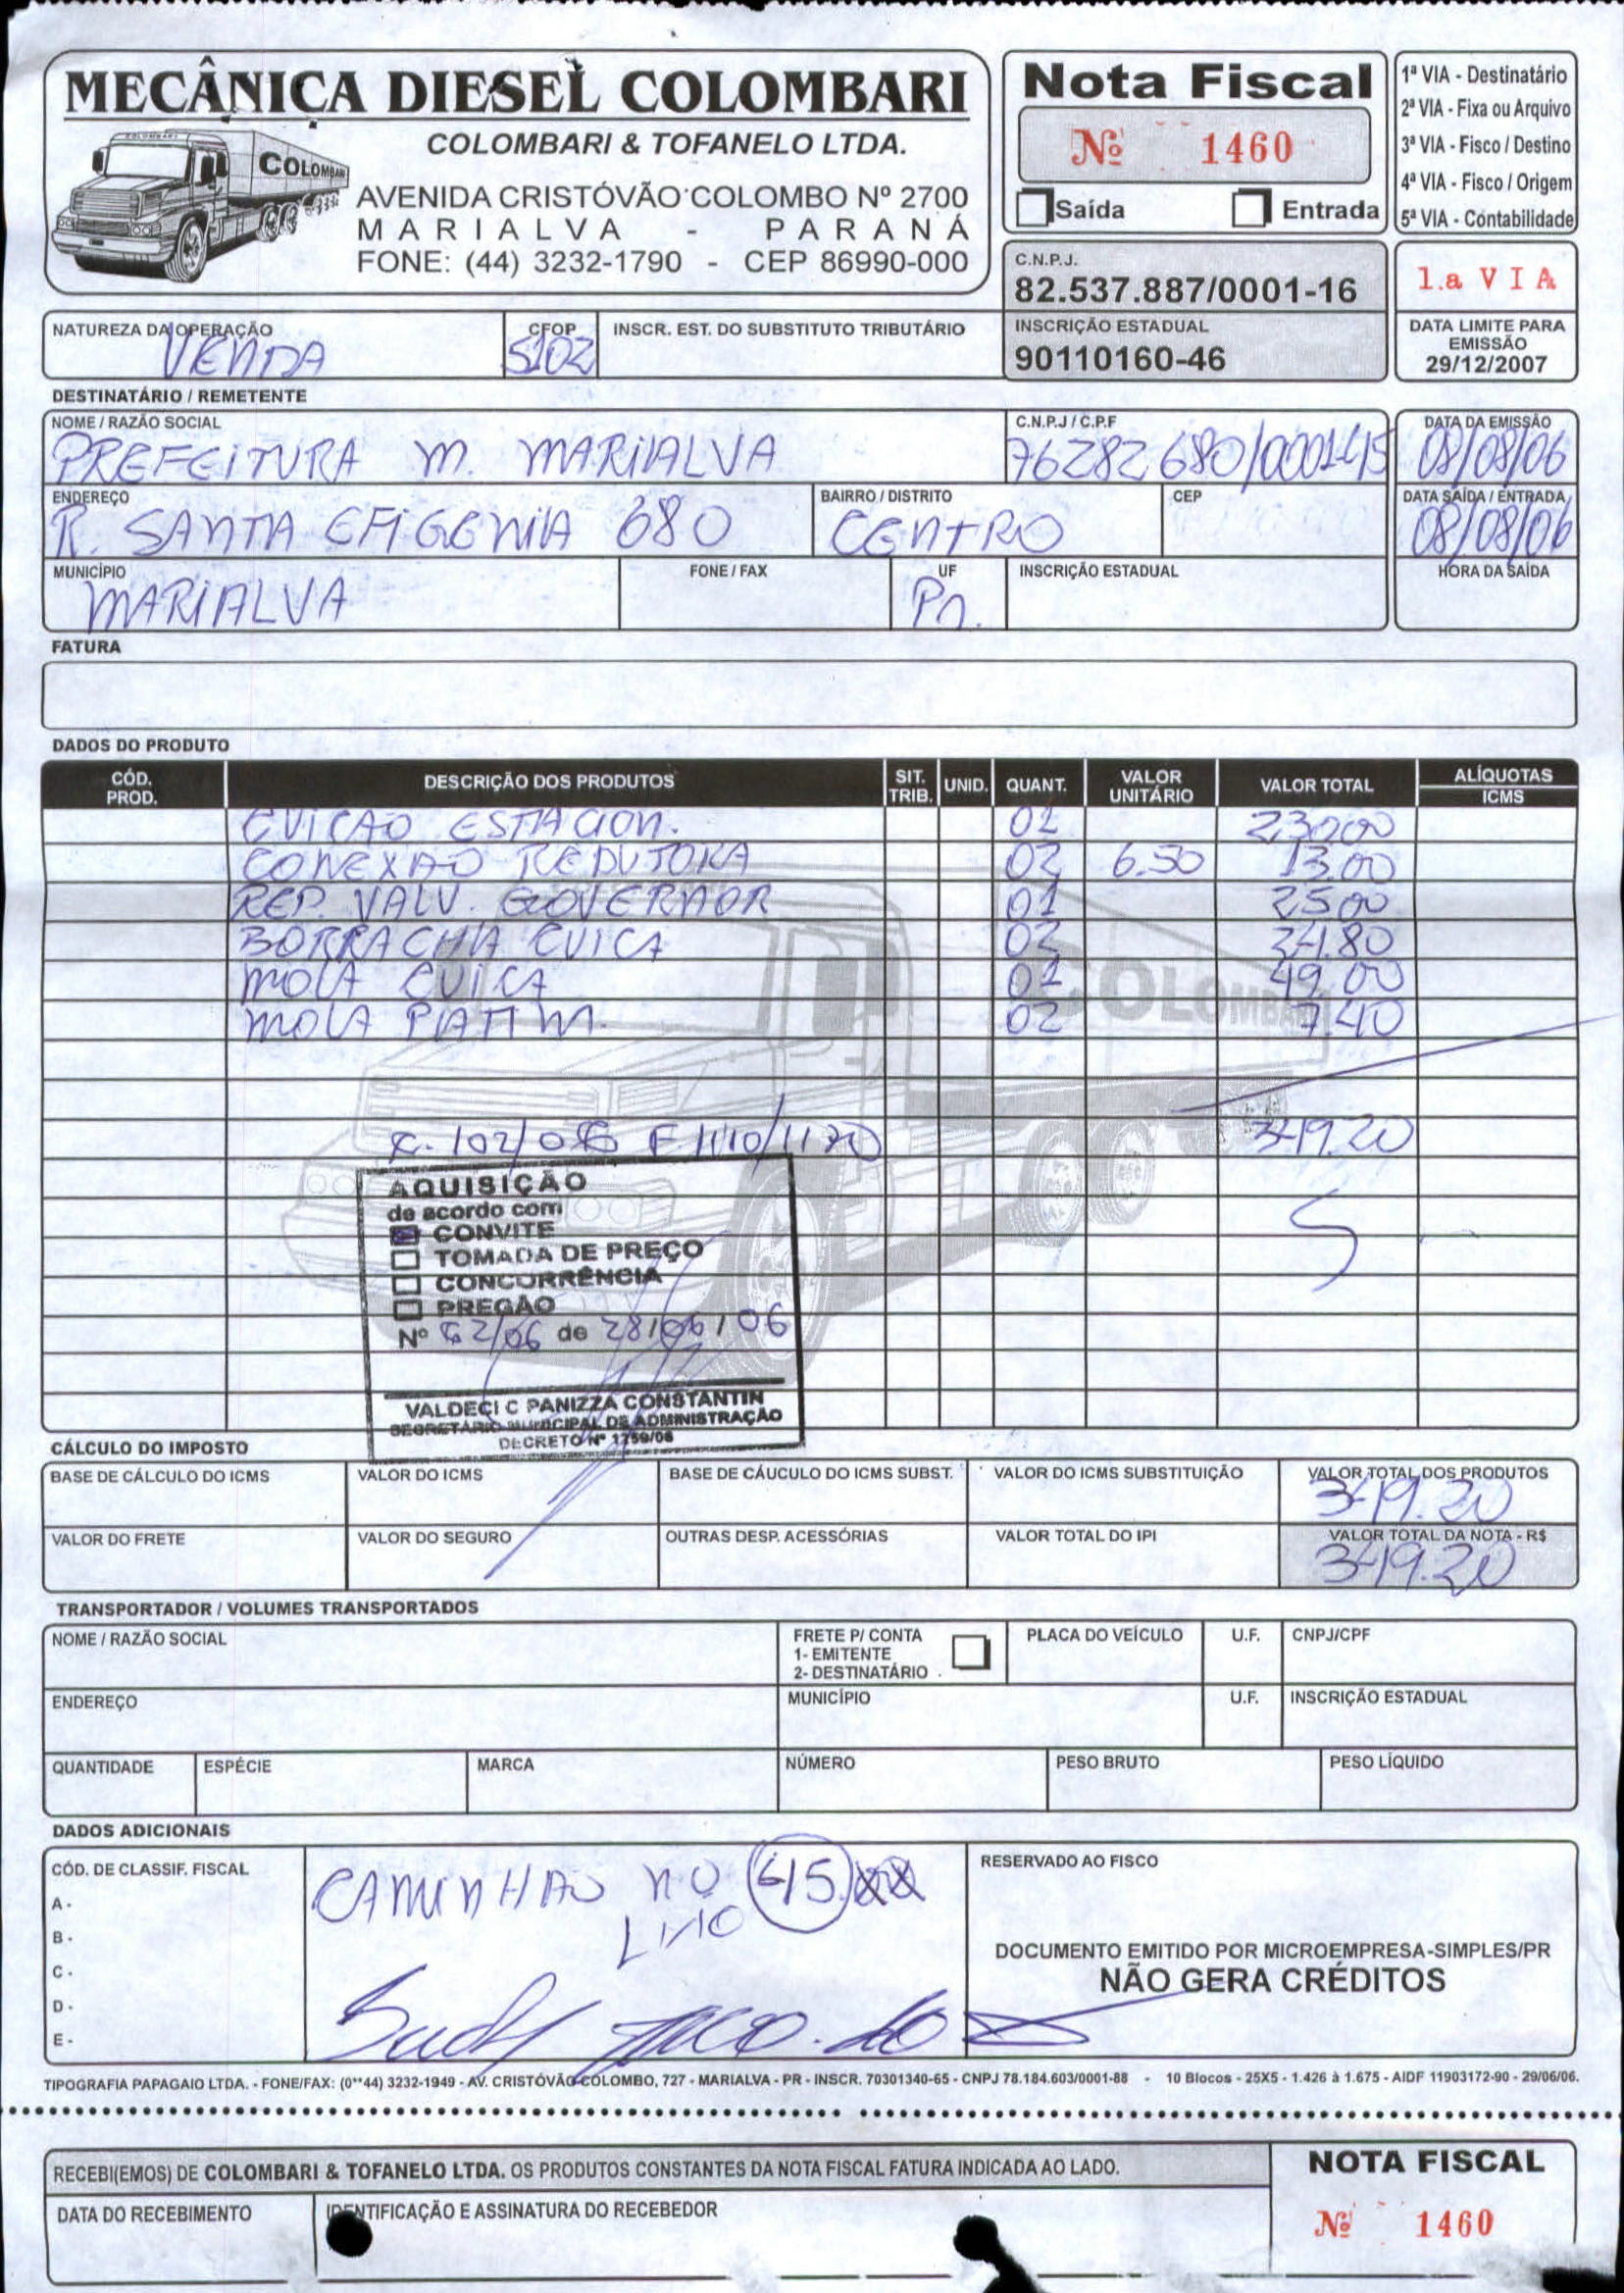 MECÂNICA DIESEL COLOMBARI
COLOMBARI & TOFANELO LTDA.
COLOMBARI
AVENIDA CRISTÓVÃO COLOMBO Nº 2700
MARIALVA - PARANÁ
FONE: (44) 3232-1790 - CEP 86990-000
Nota Fiscal
Nº 1460
Saída Entrada
1ª VIA - Destinatário
2ª VIA - Fixa ou Arquivo
3ª VIA - Fisco / Destino
4ª VIA - Fisco / Origem
5ª VIA - Contabilidade
C.N.P.J.
82.537.887/0001-16
1.a VIA
INSCRIÇÃO ESTADUAL
90110160-46
DATA LIMITE PARA
EMISSÃO
29/12/2007
NATUREZA DA OPERAÇÃO CFOP INSCR. EST. DO SUBSTITUTO TRIBUTÁRIO
VENDA 5102
DESTINATÁRIO / REMETENTE
NOME / RAZÃO SOCIAL C.N.P.J / C.P.F DATA DA EMISSÃO
PREFEITURA M. MARIALVA 76282680/0001-45 08/08/06
ENDEREÇO BAIRRO / DISTRITO CEP DATA SAÍDA / ENTRADA
R. SANTA EFIGENIA 680 CENTRO 08/08/06
MUNICÍPIO FONE / FAX UF INSCRIÇÃO ESTADUAL HORA DA SAÍDA
MARIALVA Pr.
FATURA
DADOS DO PRODUTO
CÓD. PROD. DESCRIÇÃO DOS PRODUTOS SIT. TRIB. UNID. QUANT. VALOR UNITÁRIO VALOR TOTAL ALÍQUOTAS ICMS
CUICAO ESTACION. 01 230,00
CONEXAO REDUTORA 02 6.50 13.00
REP. VALV. GOVERNAOR 01 25,00
BORRACHA CUICA 02 24.80
MOLA CUICA 01 49.00
MOLA PATIM. 02 7.40
COLOMBARI
349.20
AQUISIÇÃO
de acordo com
CONVITE
TOMADA DE PREÇO
CONCURRÊNCIA
PREGÃO
Nº 62/06 de 28/06/06
VALDECI C PANIZZA CONSTANTIN
SECRETÁRIO MUNICIPAL DE ADMINISTRAÇÃO
DECRETO Nº 1759/06
CÁLCULO DO IMPOSTO
BASE DE CÁLCULO DO ICMS VALOR DO ICMS BASE DE CÁUCULO DO ICMS SUBST. VALOR DO ICMS SUBSTITUIÇÃO VALOR TOTAL DOS PRODUTOS
349.20
VALOR DO FRETE VALOR DO SEGURO OUTRAS DESP. ACESSÓRIAS VALOR TOTAL DO IPI VALOR TOTAL DA NOTA - R$
349.20
TRANSPORTADOR / VOLUMES TRANSPORTADOS
NOME / RAZÃO SOCIAL FRETE P/ CONTA PLACA DO VEÍCULO U.F. CNPJ/CPF
1- EMITENTE
2- DESTINATÁRIO
ENDEREÇO MUNICÍPIO U.F. INSCRIÇÃO ESTADUAL
QUANTIDADE ESPÉCIE MARCA NÚMERO PESO BRUTO PESO LÍQUIDO
DADOS ADICIONAIS
CÓD. DE CLASSIF. FISCAL
A -
B -
C -
D -
E -
CAMINHAO NO 415
RESERVADO AO FISCO
DOCUMENTO EMITIDO POR MICROEMPRESA-SIMPLES/PR
NÃO GERA CRÉDITOS
TIPOGRAFIA PAPAGAIO LTDA. - FONE/FAX: (0**44) 3232-1949 - AV. CRISTÓVÃO COLOMBO, 727 - MARIALVA - PR - INSCR. 70301340-65 - CNPJ 78.184.603/0001-88 - 10 Blocos - 25X5 - 1.426 à 1.675 - AIDF 11903172-90 - 29/06/06.
RECEBI(EMOS) DE COLOMBARI & TOFANELO LTDA. OS PRODUTOS CONSTANTES DA NOTA FISCAL FATURA INDICADA AO LADO.
NOTA FISCAL
DATA DO RECEBIMENTO IDENTIFICAÇÃO E ASSINATURA DO RECEBEDOR
Nº 1460